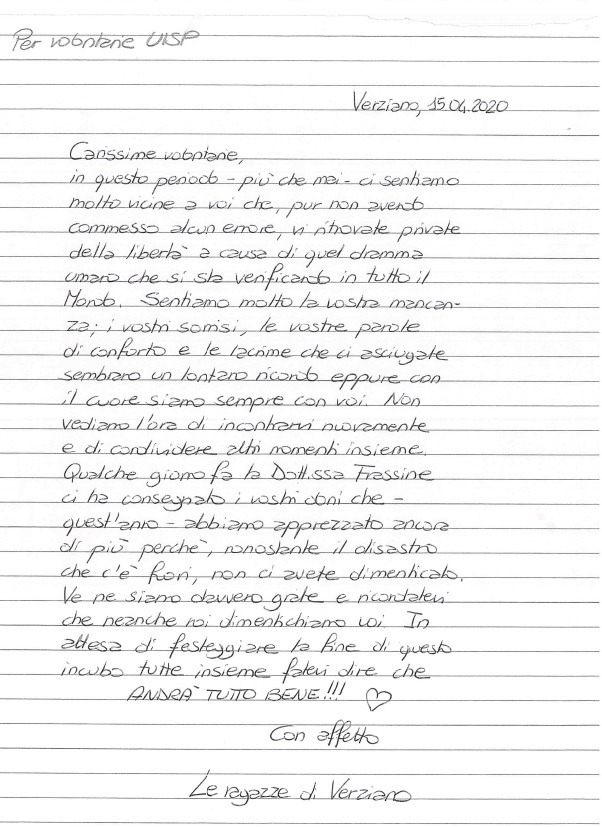 Per volontarie UISP
Verziano, 15.04.2020
Carissime volontarie,
in questo periodo - più che mai - ci sentiamo
molto vicine a voi che, pur non avendo
commesso alcun errore, vi ritrovate private
della libertà a causa di quel dramma
umano che si sta verificando in tutto il
Mondo. Sentiamo molto la vostra mancan-
za; i vostri sorrisi, le vostre parole
di conforto e le lacrime che ci asciugate
sembrano un lontano ricordo eppure con
il cuore siamo sempre con voi. Non
vediamo l'ora di incontrarvi nuovamente
e di condividere altri momenti insieme.
Qualche giorno fa la Dott.ssa Frassine
ci ha consegnato i vostri doni che -
quest'anno - abbiamo apprezzato ancora
di più perchè, nonostante il disastro
che c'è fuori, non ci avete dimenticato.
Ve ne siamo davvero grate e ricordatevi
che neanche noi dimentichiamo voi. In
attesa di festeggiare la fine di questo
incubo tutte insieme fatevi dire che
ANDRÀ TUTTO BENE!!! ♡
Con affetto
Le ragazze di Verziano